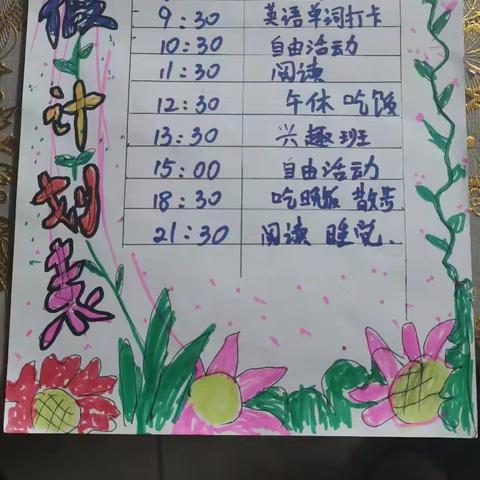 假计划表
9:30 英语单词打卡
10:30 自由活动
11:30 阅读
12:30 午休 吃饭
13:30 兴趣班
15:00 自由活动
18:30 吃晚饭 散步
21:30 阅读 睡觉.